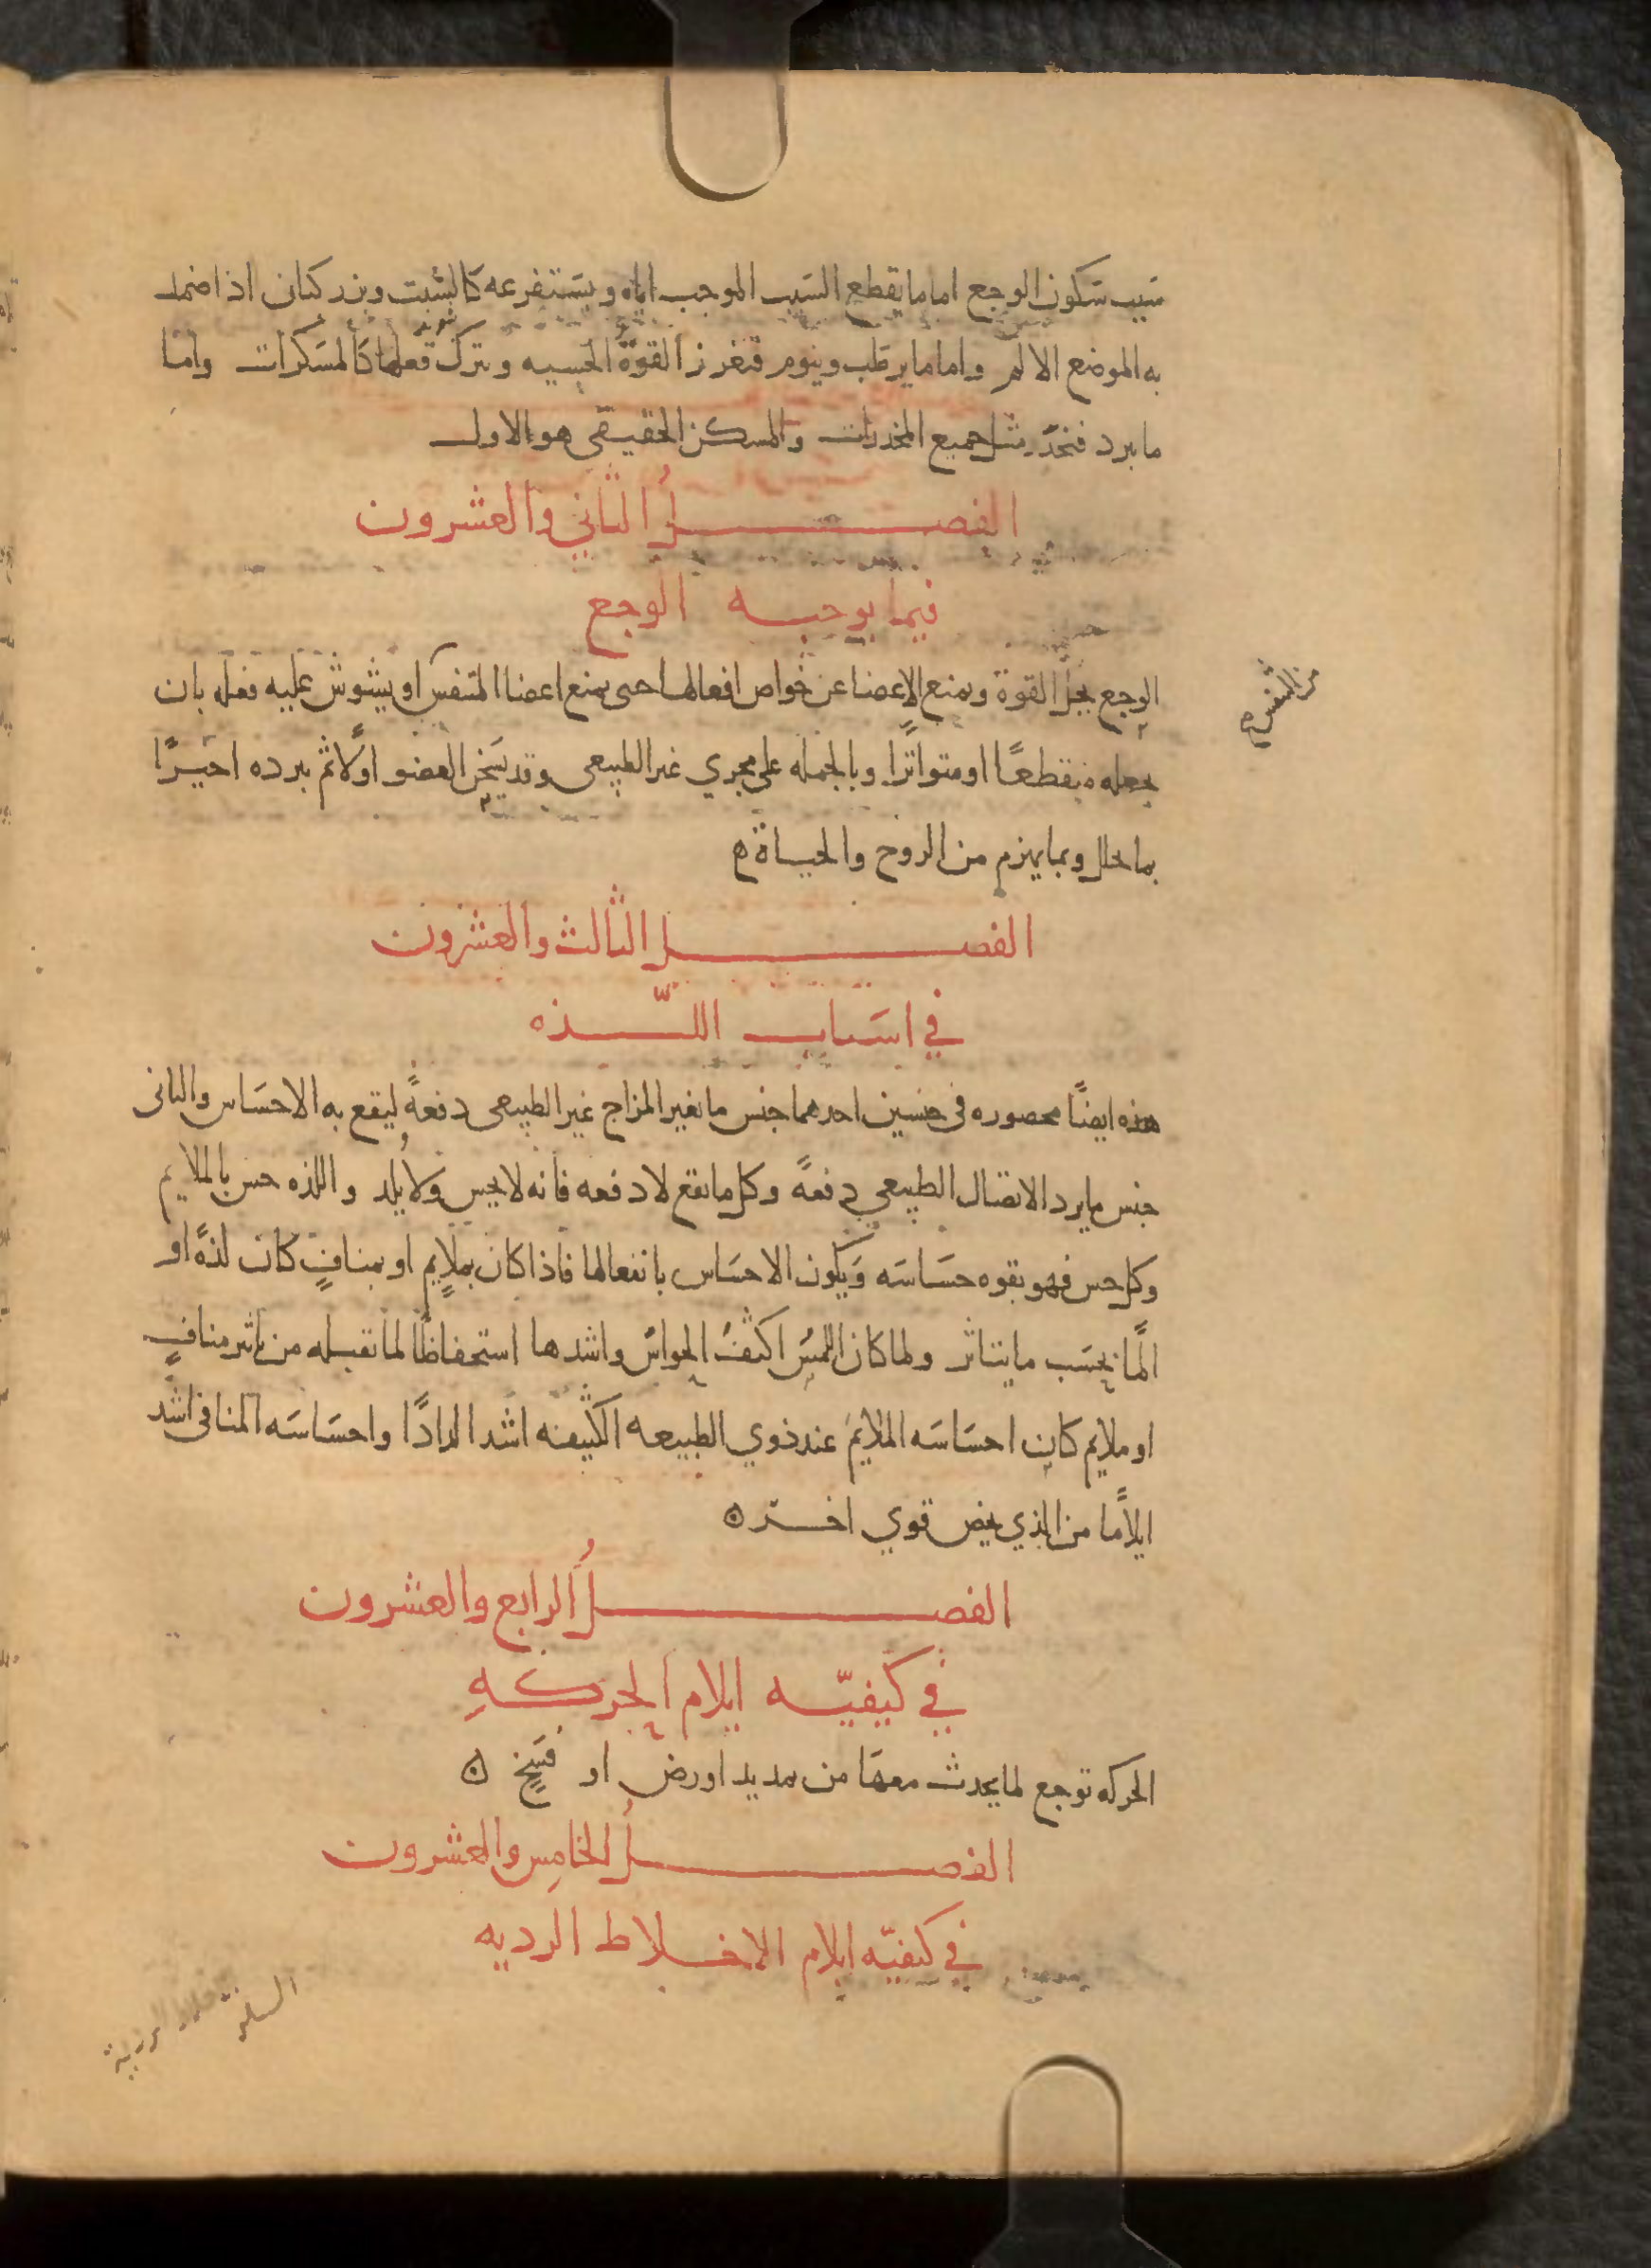 سبب سكون الوجع اما ما يقطع السبب الموجب اياه ويستفرغه كالشبت وبزر كتان اذا ضمد
به الموضع الالم واما ما يرطب وينوم فتغرز القوة الحسيه وتترك فعلها كالمسكرات واما
ما يبرد فيخدر مثل جميع المخدرات والمسكن الحقيقي هو الاول
الفصل الثاني والعشرون
فيما يوجبه الوجع
الوجع يحل القوة ويمنع الاعضا عن خواص افعالها حتى يمنع اعضا المتنفس او يشوش عليه فعله بان
من التنفس
يجعله متقطعًا او متواترًا وبالجمله على مجري غير الطبيعى وقد يسخن العضو اولًا ثم يبرده اخيرًا
بما يحلل وبما يهزم من الروح والحياة
الفصل الثالث والعشرون
في اسباب اللذه
هذه ايضًا محصوره فى جنسين احدهما جنس ما يغير المزاج غير الطبيعى دفعةً ليقع به الاحساس والثانى
جنس ما يرد الاتصال الطبيعي دفعةً وكل ما يقع لا دفعه فانه لا يحس ولا يلذ واللذه حس بالملايم
وكل حس فهو بقوه حساسه ويكون الاحساس بانفعالها فاذا كان بملايم او بمنافٍ كان لذةً او
المًا بحسب ما يتاثر ولما كان اللمس اكثف الحواس واشدها استحفاظًا لما تقبله من تاثير منافٍ
او ملايم كان احساسه الملائم عند ذوي الطبيعه الكثيفه اشد الذاذًا واحساسه المنافى اشد
ايلامًا من الذي يخص قوي اخر
الفصل الرابع والعشرون
في كيفيّه ايلام الحركهِ
الحركه توجع لما يحدث معها من تمديد او رض او فسخٍ
الفصل الخامس والعشرون
في كيفيّه ايلام الاخلاط الرديه